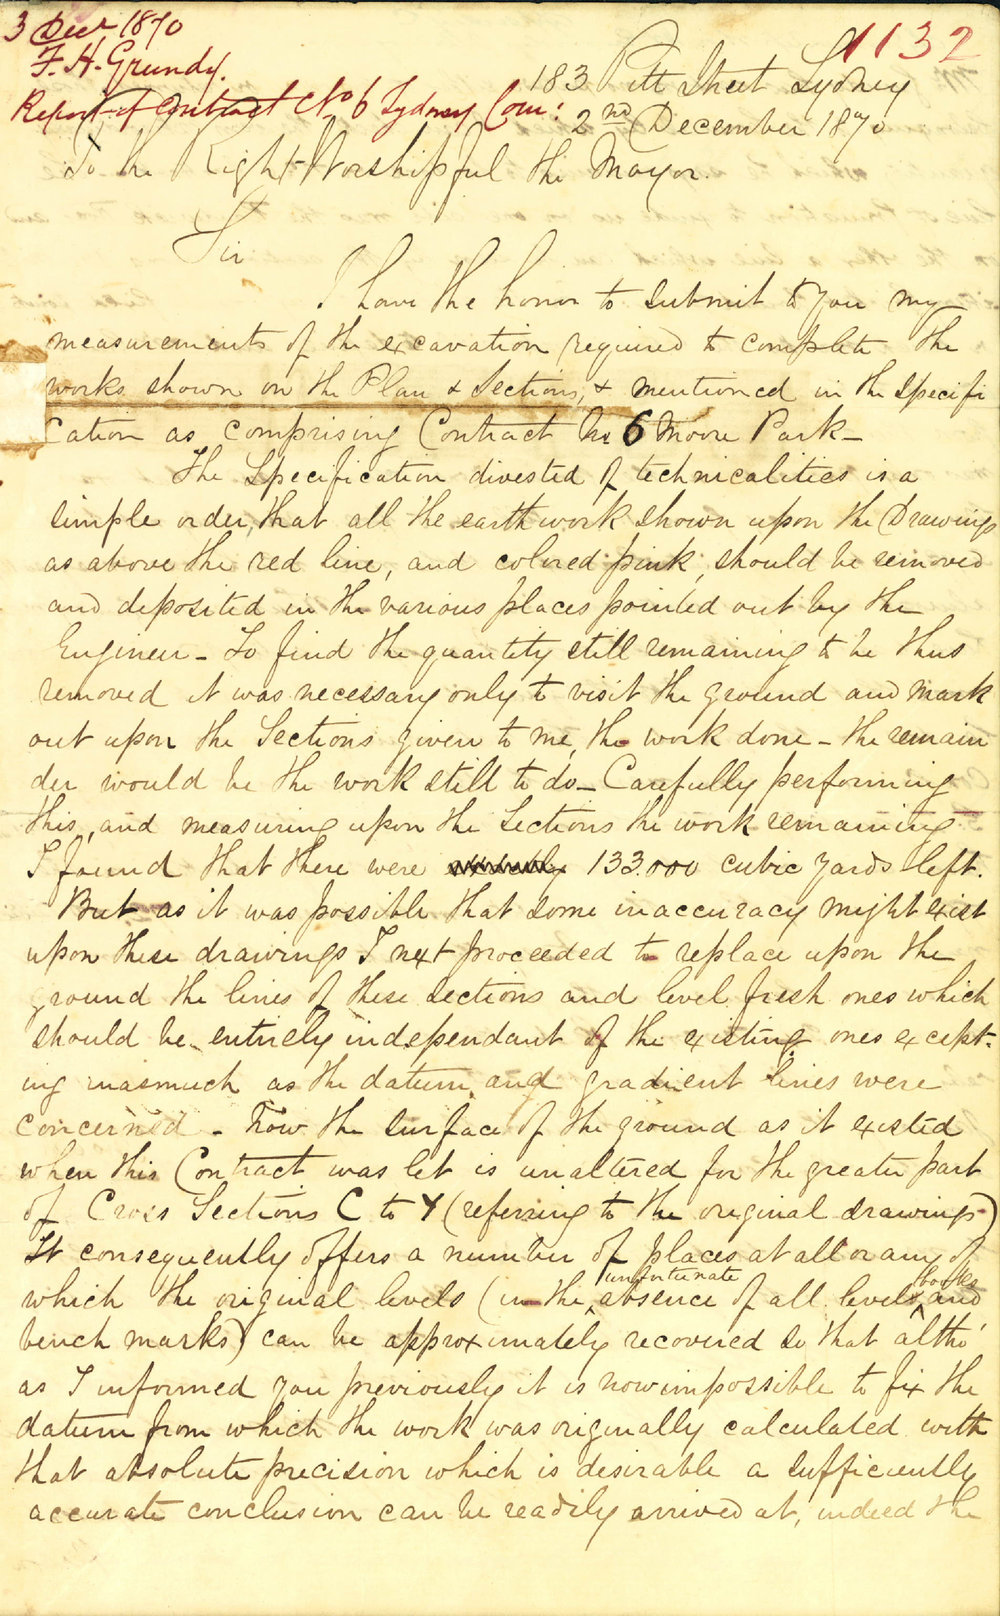 3 Decr 1870
1132
F. H. Grundy.
183 Pitt Street Sydney
Report of Contract No 6 Sydney Com:
2nd December 1870
To the Right Worshipful the Mayor.
Sir
I have the honor to submit to you my
measurements of the excavation required to complete the
works shown on the Plan & Sections, & mentioned in the specifi
cation as comprising Contract No 6 Moore Park_
The Specification divested of technicalities is a
simple order, that all the earthwork shown upon the Drawings
as above the red line, and colored pink, should be removed
and deposited in the various places pointed out by the
Engineer_ To find the quantity still remaining to be thus
removed it was necessary only to visit the ground and mark
out upon the Sections given to me, the work done_ the remain
der would be the work still to do_ Carefully performing
this, and measuring upon the Sections the work remaining
I found that there were 133.000 cubic yards left.
But as it was possible that some inaccuracy might exist
upon these drawings I next proceeded to replace upon the
ground the lines of these sections and level fresh ones which
should be entirely independant of the existing ones except-
ing inasmuch as the datum and gradient lines were
concerned_ Now the surface of the ground as it existed
when this Contract was let is unaltered for the greater part
of Cross Sections C to Y (referring to the original drawings)
It consequently offers a number of places at all or any of
which the original levels (in the unfortunate absence of all level books and
bench marks) can be approximately recovered so that altho'
as I informed you previously it is now impossible to fix the
datum from which the work was originally calculated with
that absolute precision which is desirable a sufficiently
accurate conclusion can be readily arrived at, indeed the